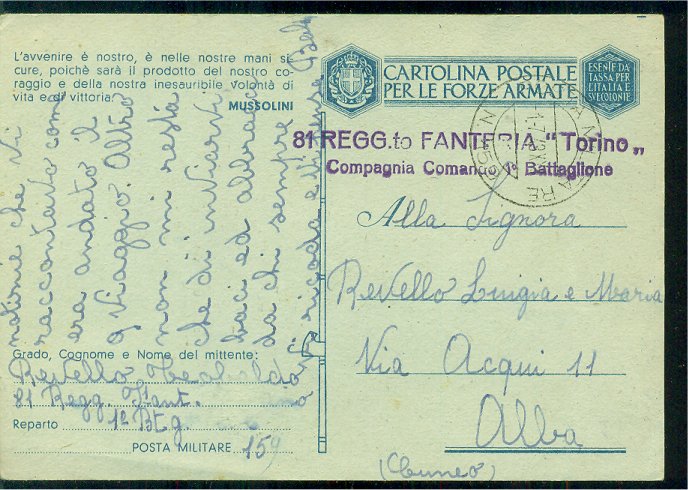 L'avvenire è nostro, è nelle nostre mani si
cure, poichè sarà il prodotto del nostro co-
raggio e della nostra inesauribile volontà di
vita e di vittoria.
MUSSOLINI
CARTOLINA POSTALE
PER LE FORZE ARMATE
ESENTE DA
TASSA PER
L'ITALIA E
SVE COLONIE
81 REGG.to FANTERIA "Torino„
Compagnia Comando 1º Battaglione
Alla Signora
Revello Luigia e Maria
Via Acqui 11
Alba
(Cuneo)
che vi
raccontavo come
era andato il
viaggio. Altro
non mi resta
che di inviarvi
baci ed abbracci
da chi sempre
vi ricorda
Grado, Cognome e Nome del mittente:
Revello
81 Regg. Fant.
Reparto 1º Btg
POSTA MILITARE 159